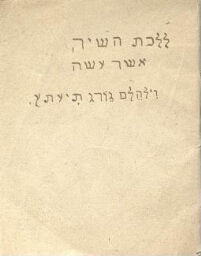 ללכת השיק
אשר עשה
וילהלם גורג תיעתץ.